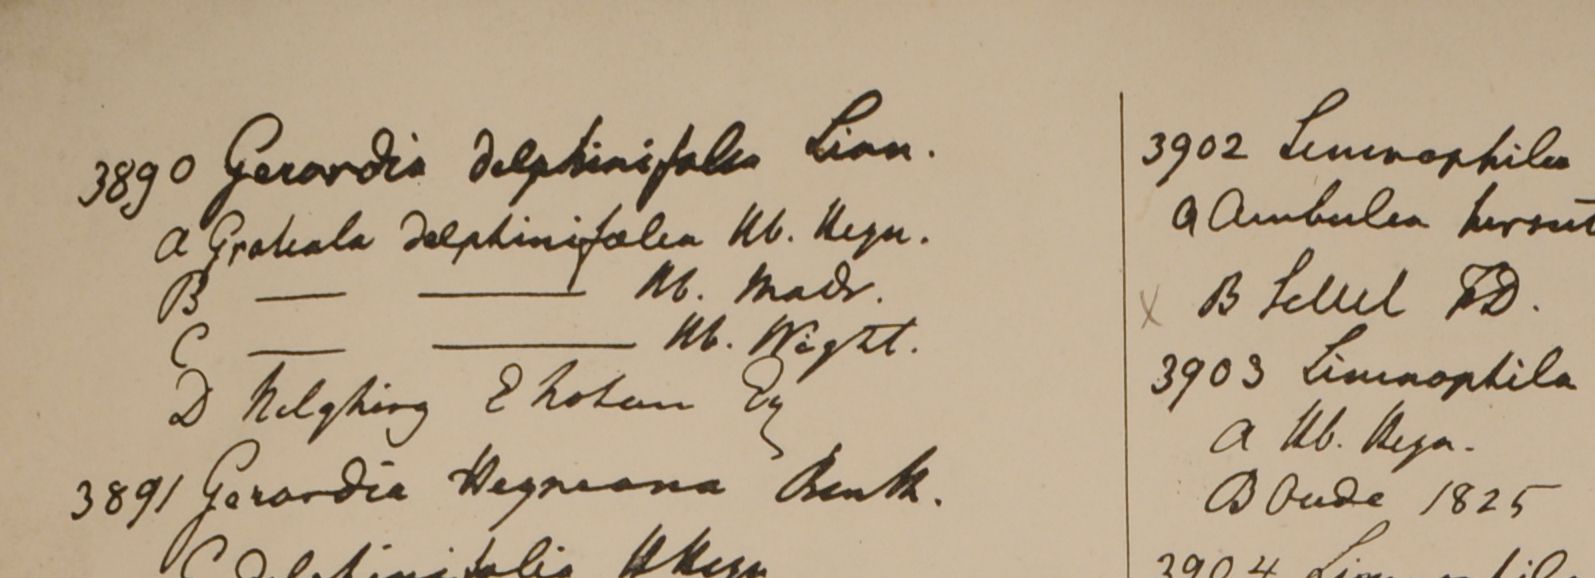 3890 Gerardia delphinifolia Linn.
A Gratiola delphinifolia Hb. Heyn.
B — — Hb. Madr.
C — — Hb. Wight.
D Nelghing Esq
3891 Gerardia Heyneana Benth.
delphinifolia Heyn
3902 Limnophila
A Ambulia hirsut
x B Sillet FD.
3903 Limnophila
A Hb. Heyn.
B Oude 1825
3904 Limnophila